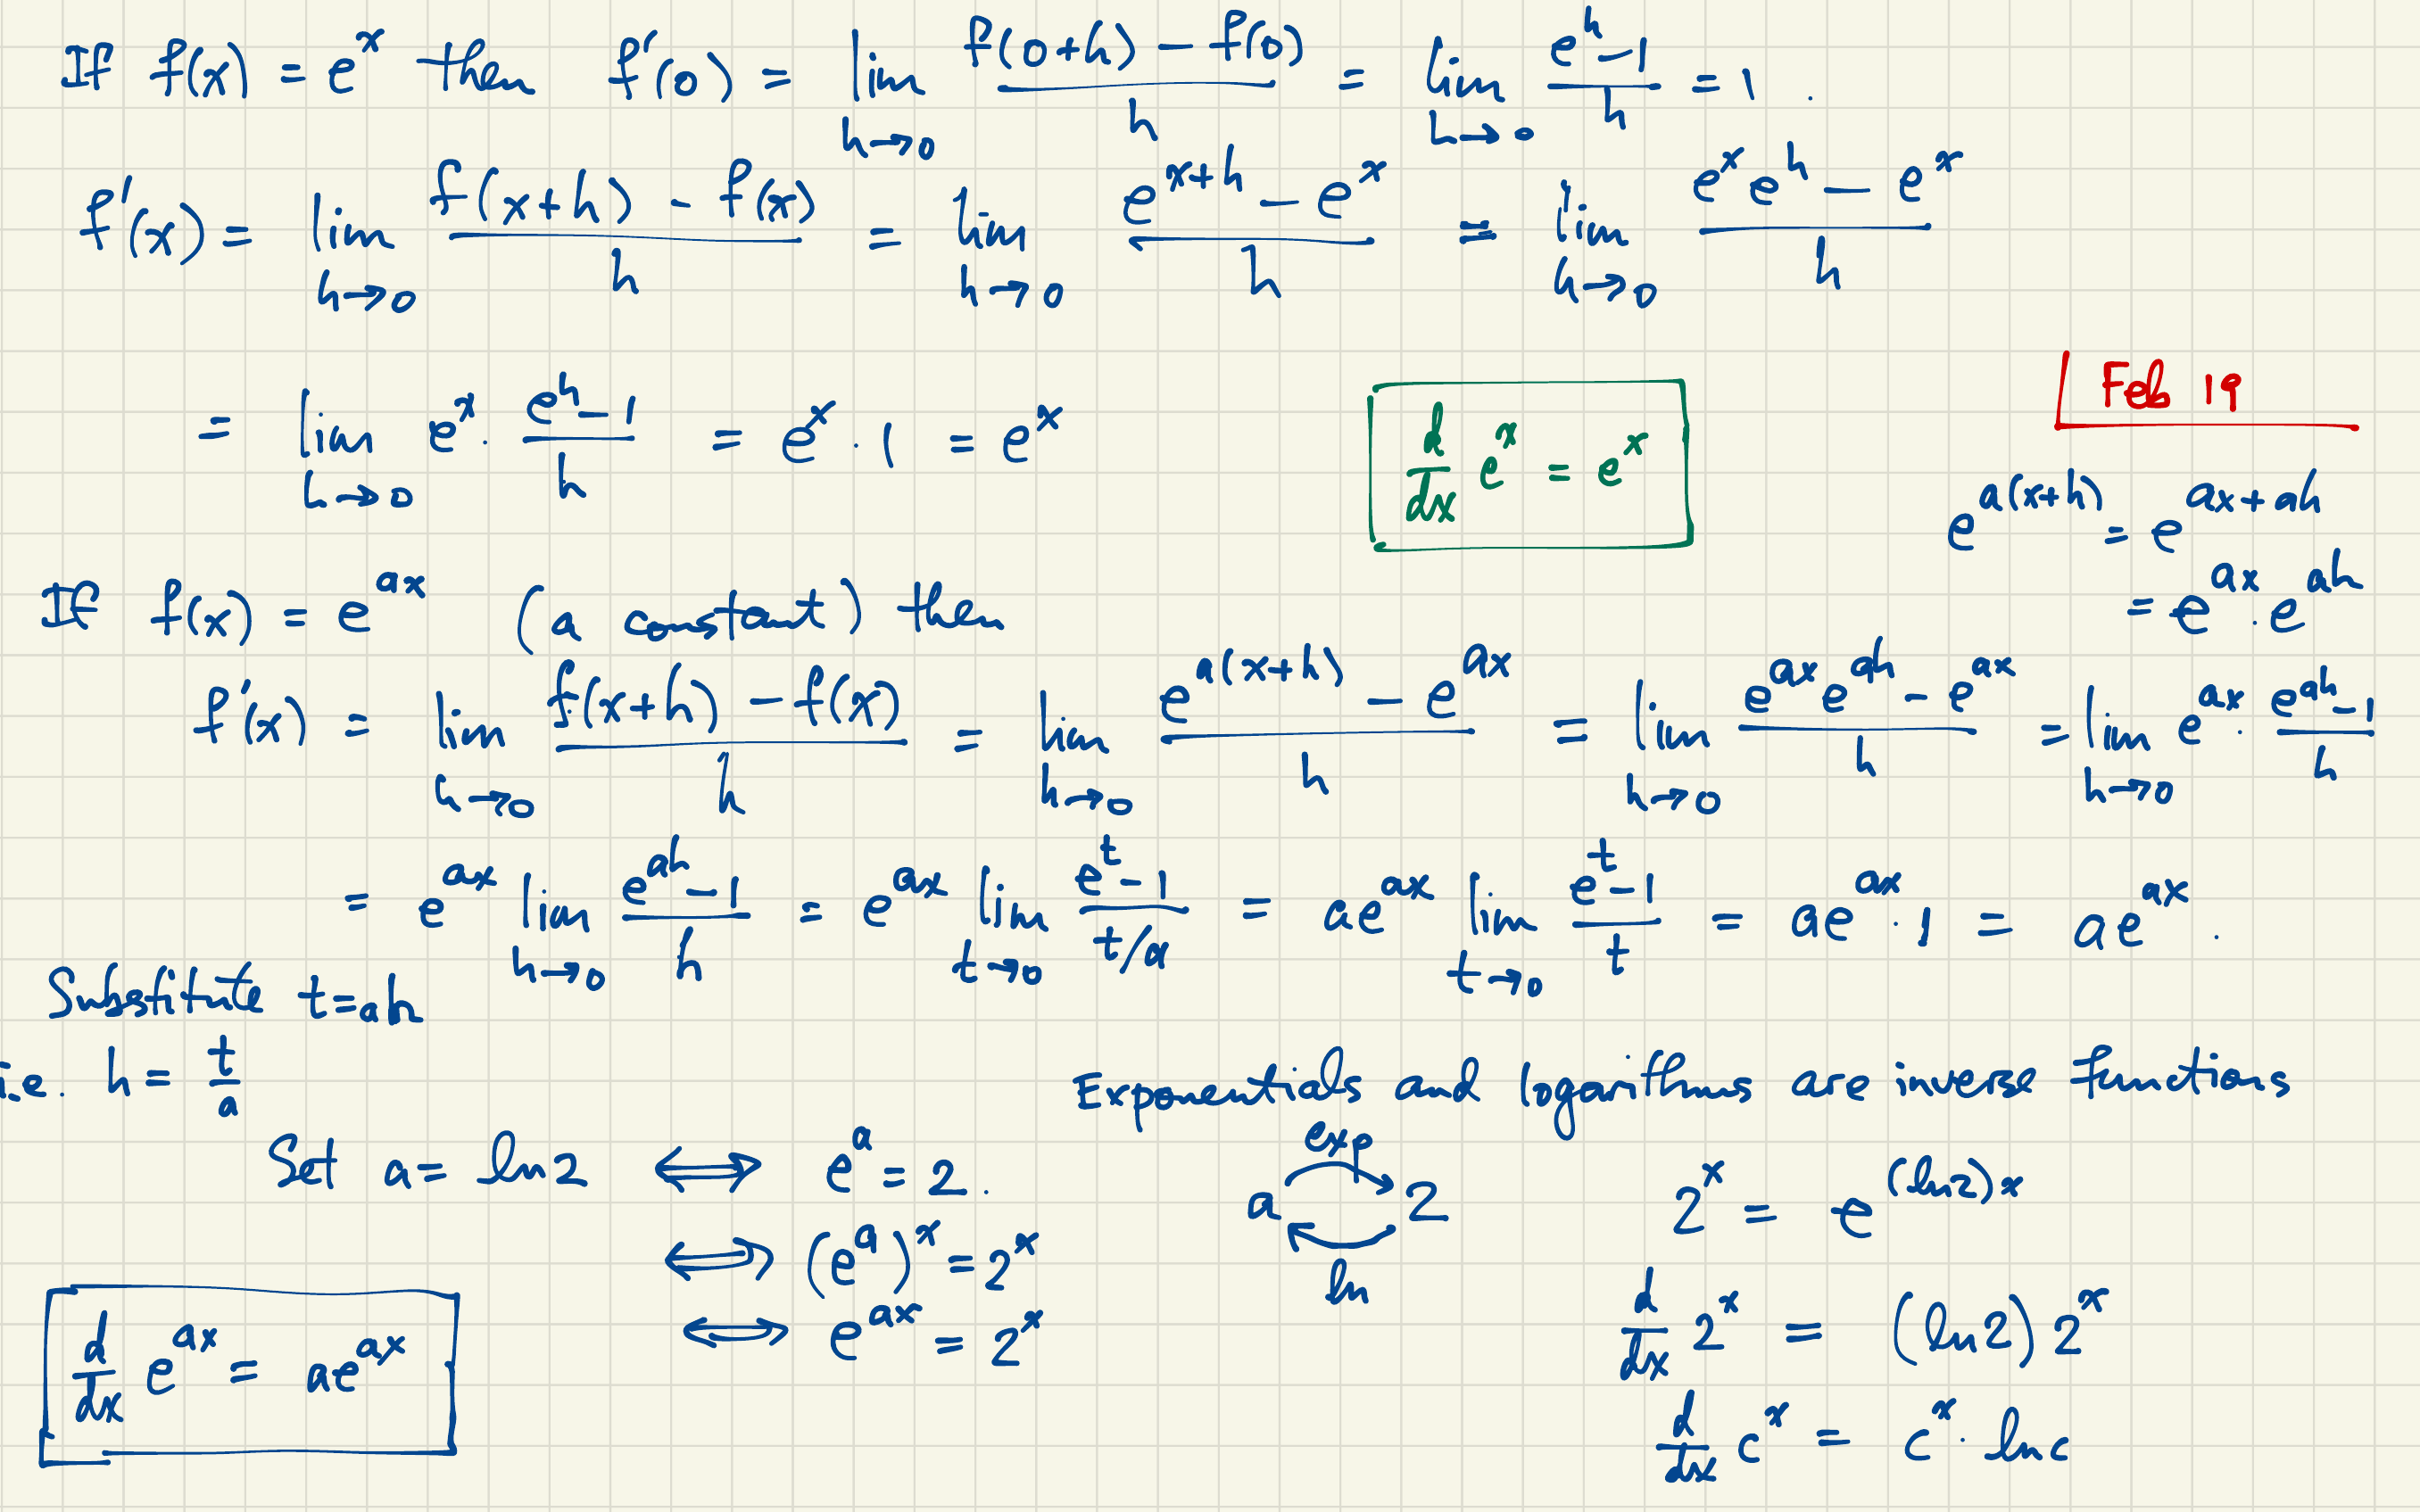 If f(x) = e^x then f'(0) = lim_{h→0} (f(0+h) - f(0))/h = lim_{h→0} (e^h - 1)/h = 1.
f'(x) = lim_{h→0} (f(x+h) - f(x))/h = lim_{h→0} (e^{x+h} - e^x)/h = lim_{h→0} (e^x e^h - e^x)/h
= lim_{h→0} e^x · (e^h - 1)/h = e^x · 1 = e^x
d/dx e^x = e^x
Feb 19
e^{a(x+h)} = e^{ax+ah}
= e^{ax} · e^{ah}
If f(x) = e^{ax} (a constant) then
f'(x) = lim_{h→0} (f(x+h) - f(x))/h = lim_{h→0} (e^{a(x+h)} - e^{ax})/h = lim_{h→0} (e^{ax} e^{ah} - e^{ax})/h = lim_{h→0} e^{ax} · (e^{ah} - 1)/h
= e^{ax} lim_{h→0} (e^{ah} - 1)/h = e^{ax} lim_{t→0} (e^t - 1)/(t/a) = ae^{ax} lim_{t→0} (e^t - 1)/t = ae^{ax} · 1 = ae^{ax}.
Substitute t = ah
i.e. h = t/a
Exponentials and logarithms are inverse functions
Set a = ln 2 ⟺ e^a = 2.
⟺ (e^a)^x = 2^x
⟺ e^{ax} = 2^x
exp
a 2
ln
2^x = e^{(ln 2)x}
d/dx 2^x = (ln 2) 2^x
d/dx c^x = c^x · ln c
d/dx e^{ax} = ae^{ax}